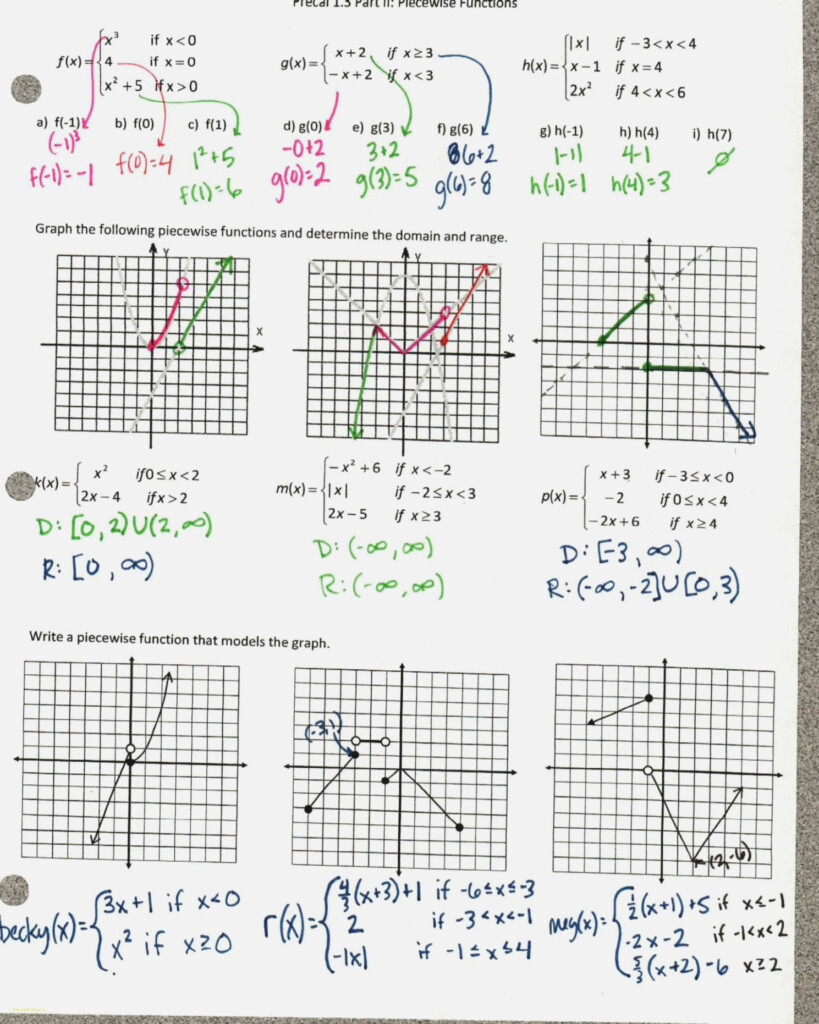 Precal 1.3 Part II: Piecewise Functions
f(x) = { x³ if x < 0
4 if x = 0
x² + 5 if x > 0
g(x) = { x + 2 if x ≥ 3
−x + 2 if x < 3
h(x) = { |x| if −3 < x < 4
x − 1 if x = 4
2x² if 4 < x < 6
a) f(-1) b) f(0) c) f(1) d) g(0) e) g(3) f) g(6) g) h(-1) h) h(4) i) h(7)
(-1)³ f(0)=4 1²+5 -0+2 3+2 6+2 |-1| 4-1 ∅
f(-1)=-1 f(1)=6 g(0)=2 g(3)=5 g(6)=8 h(-1)=1 h(4)=3
Graph the following piecewise functions and determine the domain and range.
Y Y
X X
k(x) = { x² if 0 ≤ x < 2
2x − 4 if x > 2
D: [0, 2) U (2, ∞)
R: [0, ∞)
m(x) = { −x² + 6 if x < −2
|x| if −2 ≤ x < 3
2x − 5 if x ≥ 3
D: (-∞, ∞)
R: (-∞, ∞)
p(x) = { x + 3 if −3 ≤ x < 0
−2 if 0 ≤ x < 4
−2x + 6 if x ≥ 4
D: [-3, ∞)
R: (-∞, -2] U [0, 3)
Write a piecewise function that models the graph.
(-3,1)
(2,-6)
becky(x) = { 3x+1 if x<0
x² if x≥0
r(x) = { 4/3(x+3)+1 if -6≤x≤-3
2 if -3<x<-1
-|x| if -1≤x≤4
meg(x) = { 1/2(x+1)+5 if x≤-1
-2x-2 if -1<x<2
5/3(x+2)-6 x≥2